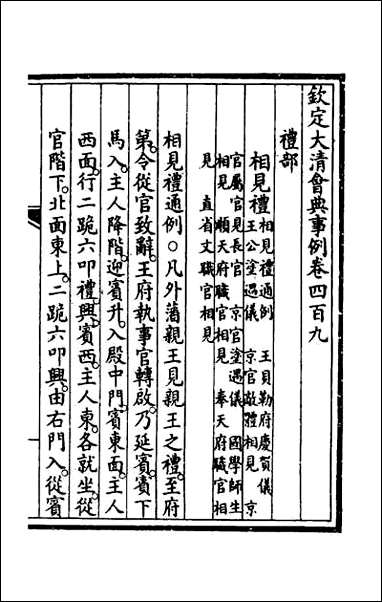 欽定大清會典事例卷四百九
禮部
相見禮
相見禮通例 王貝勒府慶賀儀
王公塗遇儀 京官敵體相見 京
官屬官見長官 京官塗遇儀 國學師生
相見 順天府職官相見 奉天府職官相
見 直省文職官相見
相見禮通例○凡外藩親王見親王之禮。至府
第。令從官致辭。王府執事官轉啟。乃延賓。賓下
馬入。主人降階。迎賓升。入殿中門。賓東面。主人
西面。行二跪六叩禮。興。賓西。主人東。各就坐。從
官階下。北面東上。二跪六叩。興。由右門入。從賓